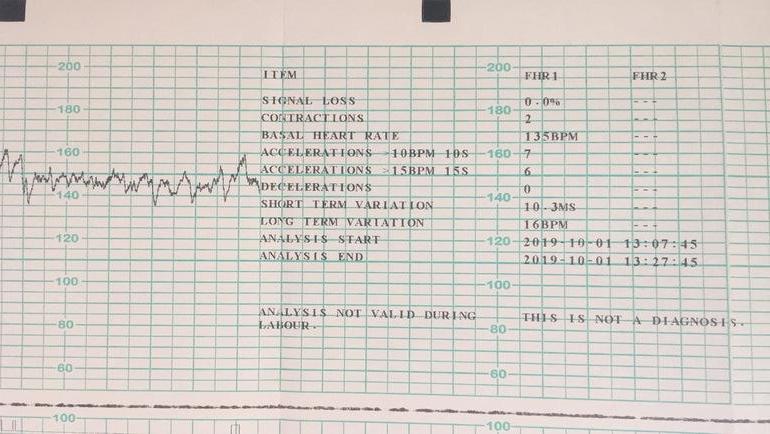 200
180
160
140
120
100
80
60
100
ITEM FHR1 FHR2
SIGNAL LOSS 0.0% ---
CONTRACTIONS 2 ---
BASAL HEART RATE 135BPM ---
ACCELERATIONS >10BPM 10S 7 ---
ACCELERATIONS >15BPM 15S 6 ---
DECELERATIONS 0 ---
SHORT TERM VARIATION 10.3MS ---
LONG TERM VARIATION 16BPM ---
ANALYSIS START 2019-10-01 13:07:45
ANALYSIS END 2019-10-01 13:27:45
ANALYSIS NOT VALID DURING
LABOUR.
THIS IS NOT A DIAGNOSIS.
200
180
160
140
120
100
80
60
100